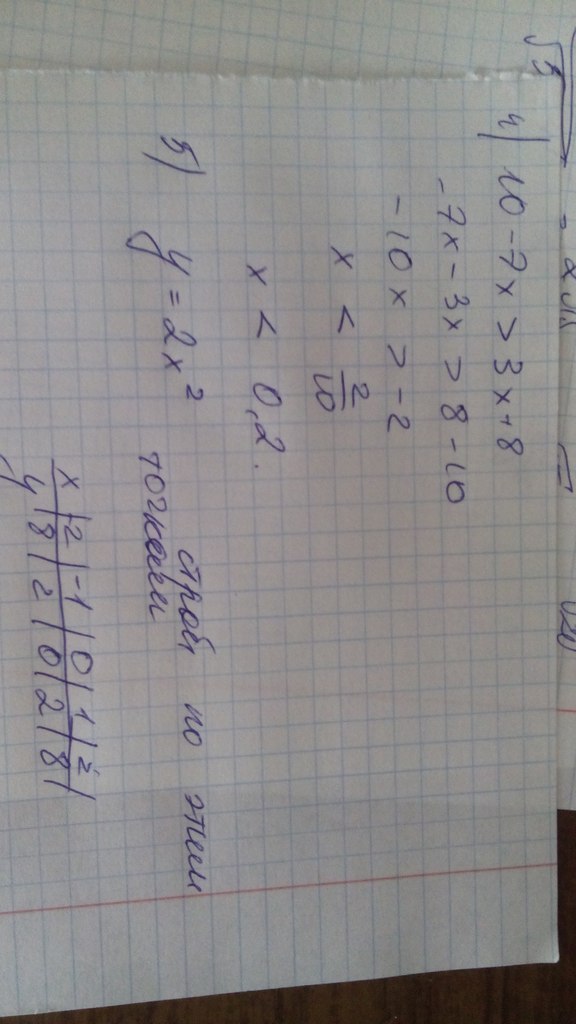 4) 10 - 7x > 3x + 8
-7x - 3x > 8 - 10
-10x > -2
x < 2/10
x < 0,2.
5) y = 2x² строй по этим
точкам
x | 2 | -1 | 0 | 1 | 2 |
y | 8 | 2 | 0 | 2 | 8 |